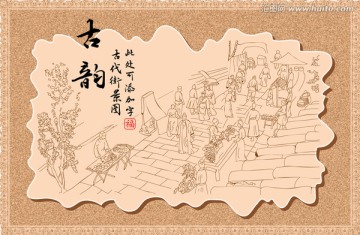 古韵
此处可添加字
古代街景图
福
www.nipic.com